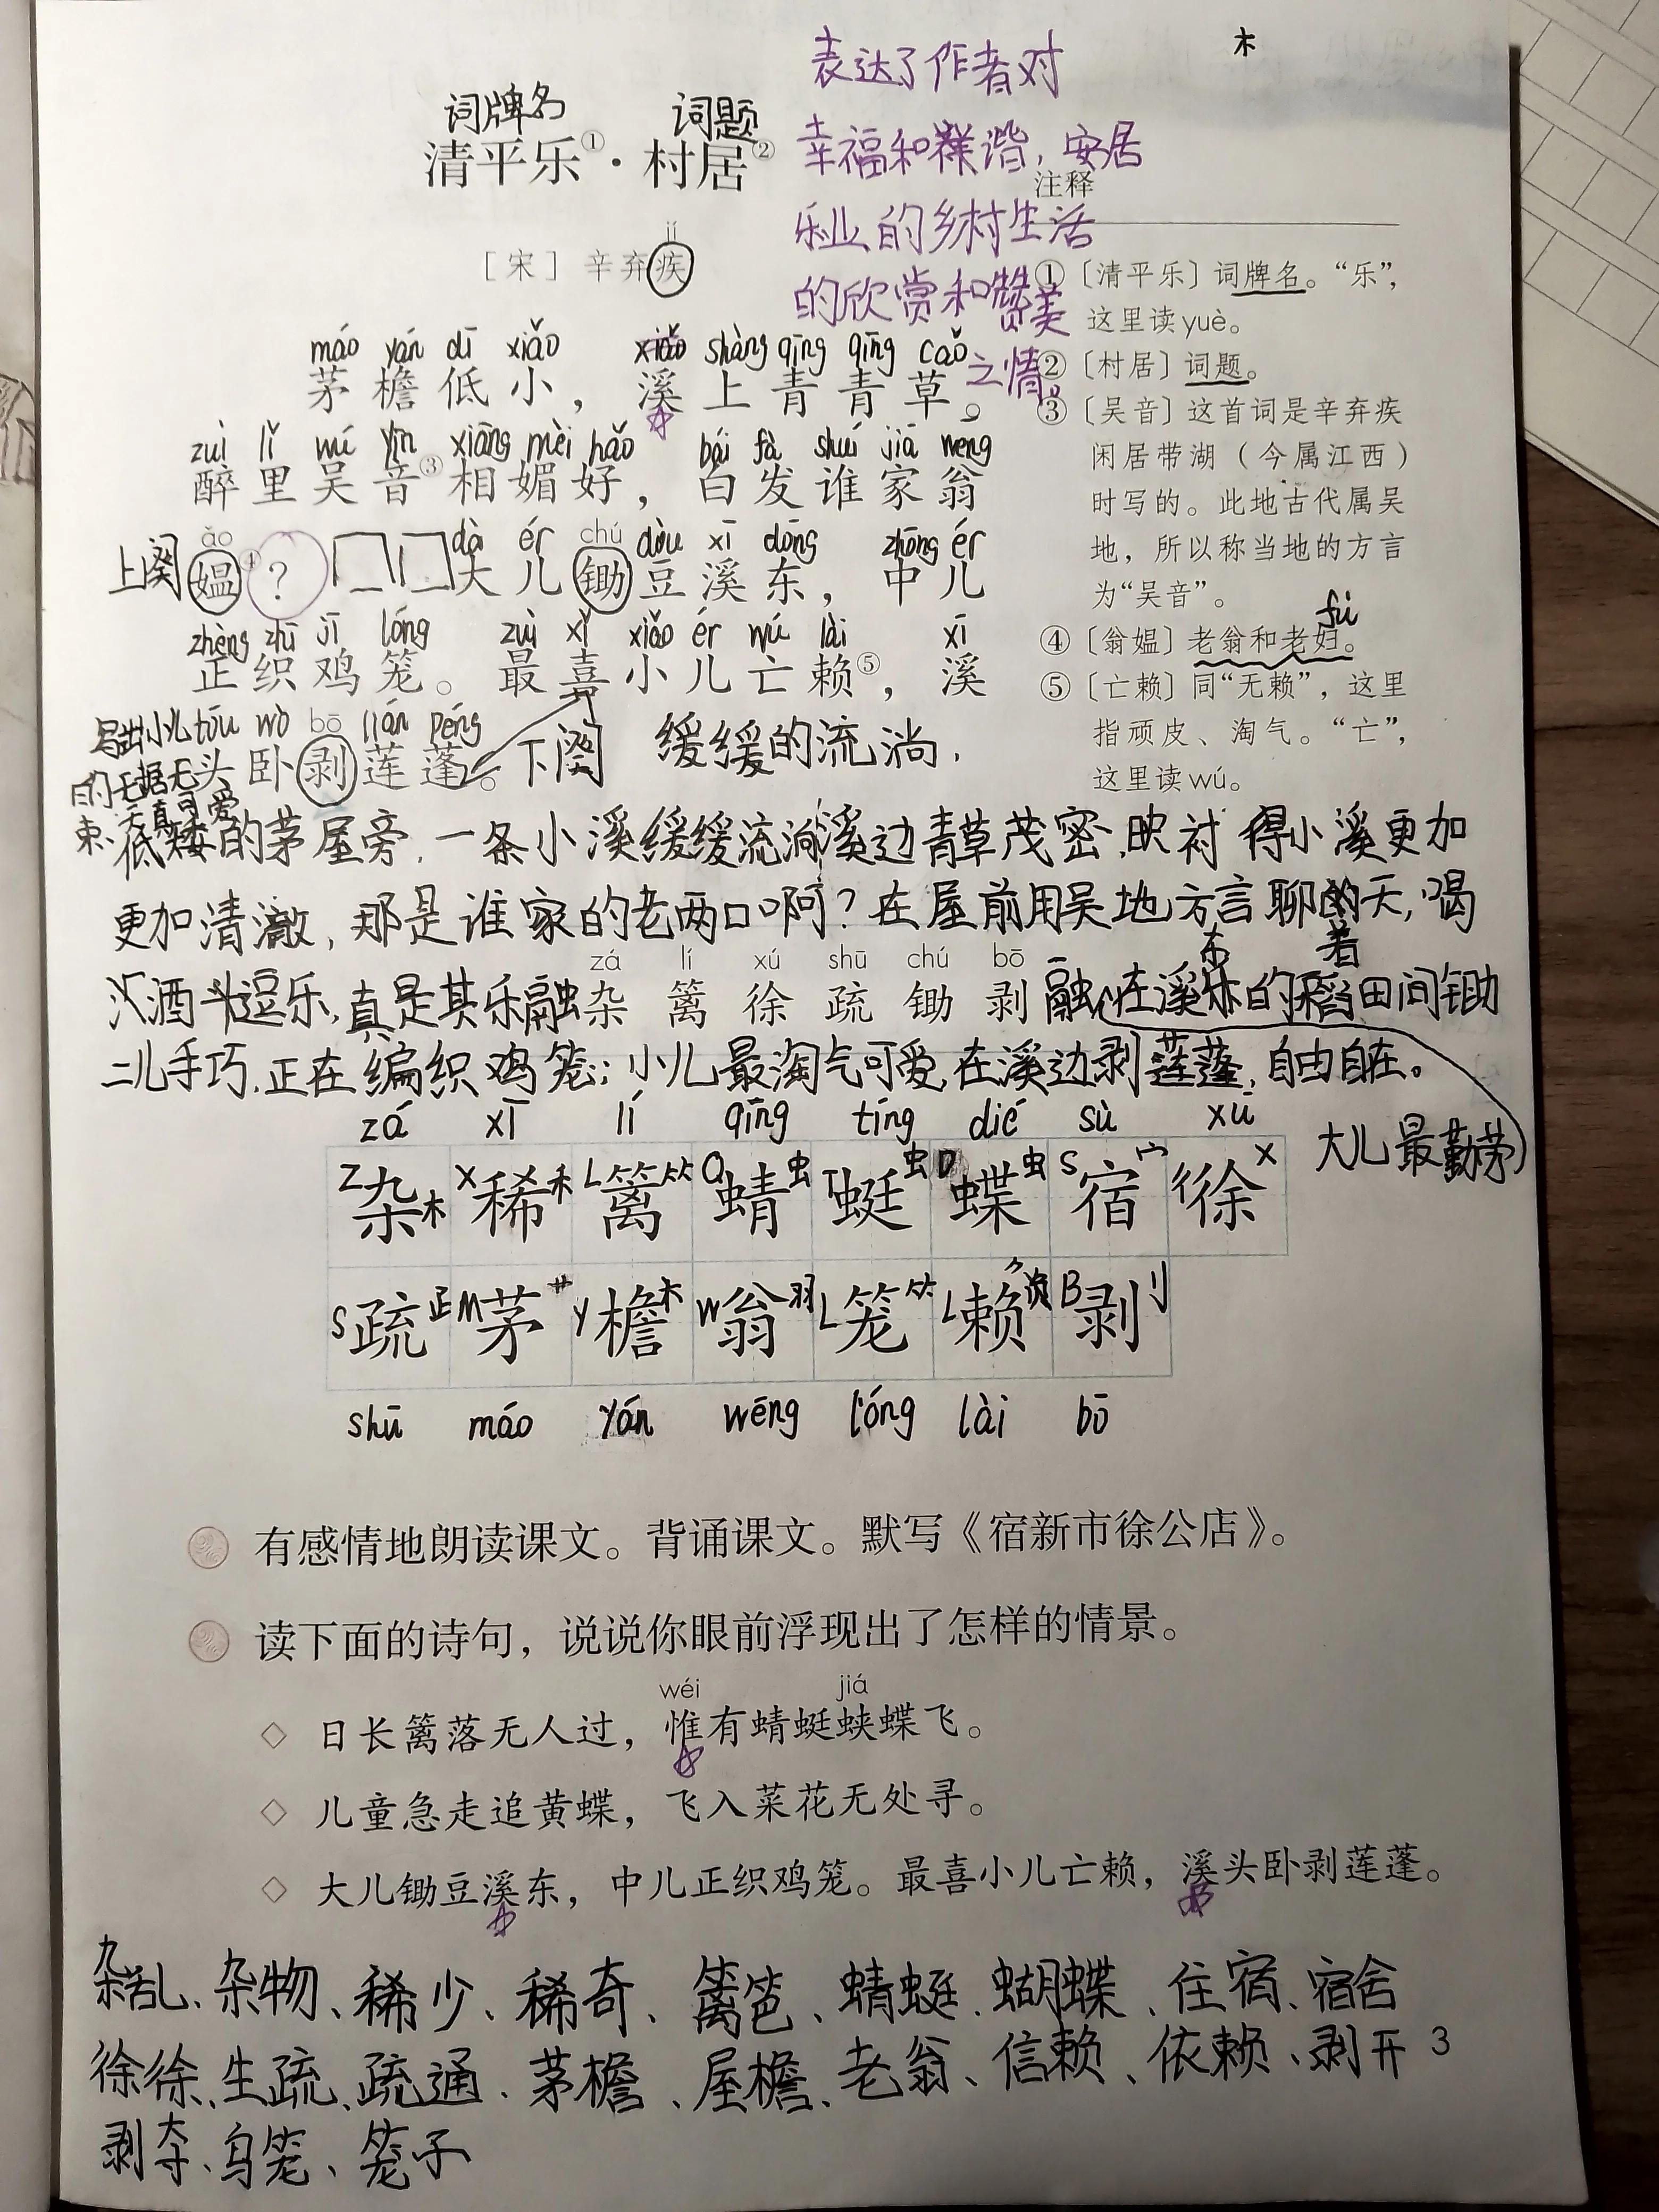 木
表达了作者对
幸福和谐，安居
乐业的乡村生活
的欣赏和赞美
之情。
词牌名 词题
清平乐①·村居②
jí
［宋］辛弃疾
máo yán dī xiǎo xiǎo shàng qīng qīng cǎo
茅檐低小，溪上青青草。
zuì lǐ wú yīn xiāng mèi hǎo bái fà shuí jiā wēng
醉里吴音③相媚好，白发谁家翁
ǎo dà ér chú dòu xī dōng zhōng ér
上阕 媪④？ 大儿锄豆溪东，中儿
zhèng zhī jī lóng zuì xǐ xiǎo ér wú lài xī
正织鸡笼。最喜小儿亡赖⑤，溪
tóu wò bō lián péng
头卧剥莲蓬。下阕
写出小儿
的无据无
束、天真可爱
注释
①〔清平乐〕词牌名。“乐”，
这里读yuè。
②〔村居〕词题。
③〔吴音〕这首词是辛弃疾
闲居带湖（今属江西）
时写的。此地古代属吴
地，所以称当地的方言
为“吴音”。
fù
④〔翁媪〕老翁和老妇。
⑤〔亡赖〕同“无赖”，这里
指顽皮、淘气。“亡”，
这里读wú。
缓缓的流淌，
低矮的茅屋旁，一条小溪缓缓流淌，溪边青草茂密，映衬得小溪更加
更加清澈，那是谁家的老两口啊？在屋前用吴地方言聊着天，喝
酒逗乐，真是其乐融融，在溪东的稻田间锄
zá lí xú shū chú bō
杂 篱 徐 疏 锄 剥
二儿手巧，正在编织鸡笼；小儿最淘气可爱，在溪边剥莲蓬，自由自在。
大儿最勤劳
zá xī lí qīng tíng dié sù xú
Z杂木 X稀禾 L篱⺮ Q蜻虫 T蜓虫 D蝶虫 S宿宀 徐彳X
S疏 M茅艹 Y檐木 W翁羽 L笼⺮ L赖 B剥刂
shū máo yán wēng lóng lài bō
有感情地朗读课文。背诵课文。默写《宿新市徐公店》。
读下面的诗句，说说你眼前浮现出了怎样的情景。
wéi jiá
◇ 日长篱落无人过，惟有蜻蜓蛱蝶飞。
◇ 儿童急走追黄蝶，飞入菜花无处寻。
◇ 大儿锄豆溪东，中儿正织鸡笼。最喜小儿亡赖，溪头卧剥莲蓬。
杂乱、杂物、稀少、稀奇、篱笆、蜻蜓、蝴蝶、住宿、宿舍
徐徐、生疏、疏通、茅檐、屋檐、老翁、信赖、依赖、剥开
剥夺、鸟笼、笼子
3